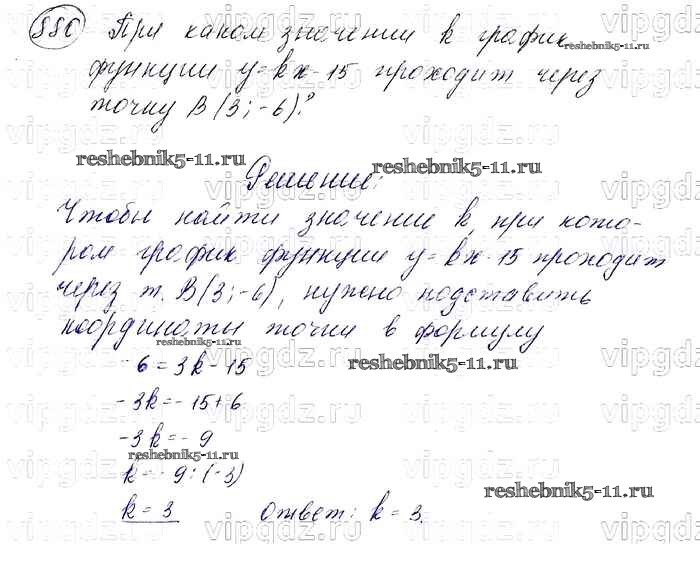 880 При каком значении k график
функции y=kx-15 проходит через
точку B(3;-6)?
Решение:
Чтобы найти значение k, при кото-
ром график функции y=kx-15 проходит
через т. B(3;-6), нужно подставить
координаты точки в формулу
-6=3k-15
-3k=-15+6
-3k=-9
k=-9:(-3)
k=3
Ответ: k=3.
reshebnik5-11.ru
reshebnik5-11.ru
reshebnik5-11.ru
reshebnik5-11.ru
reshebnik5-11.ru
reshebnik5-11.ru
reshebnik5-11.ru
vipgdz.ru